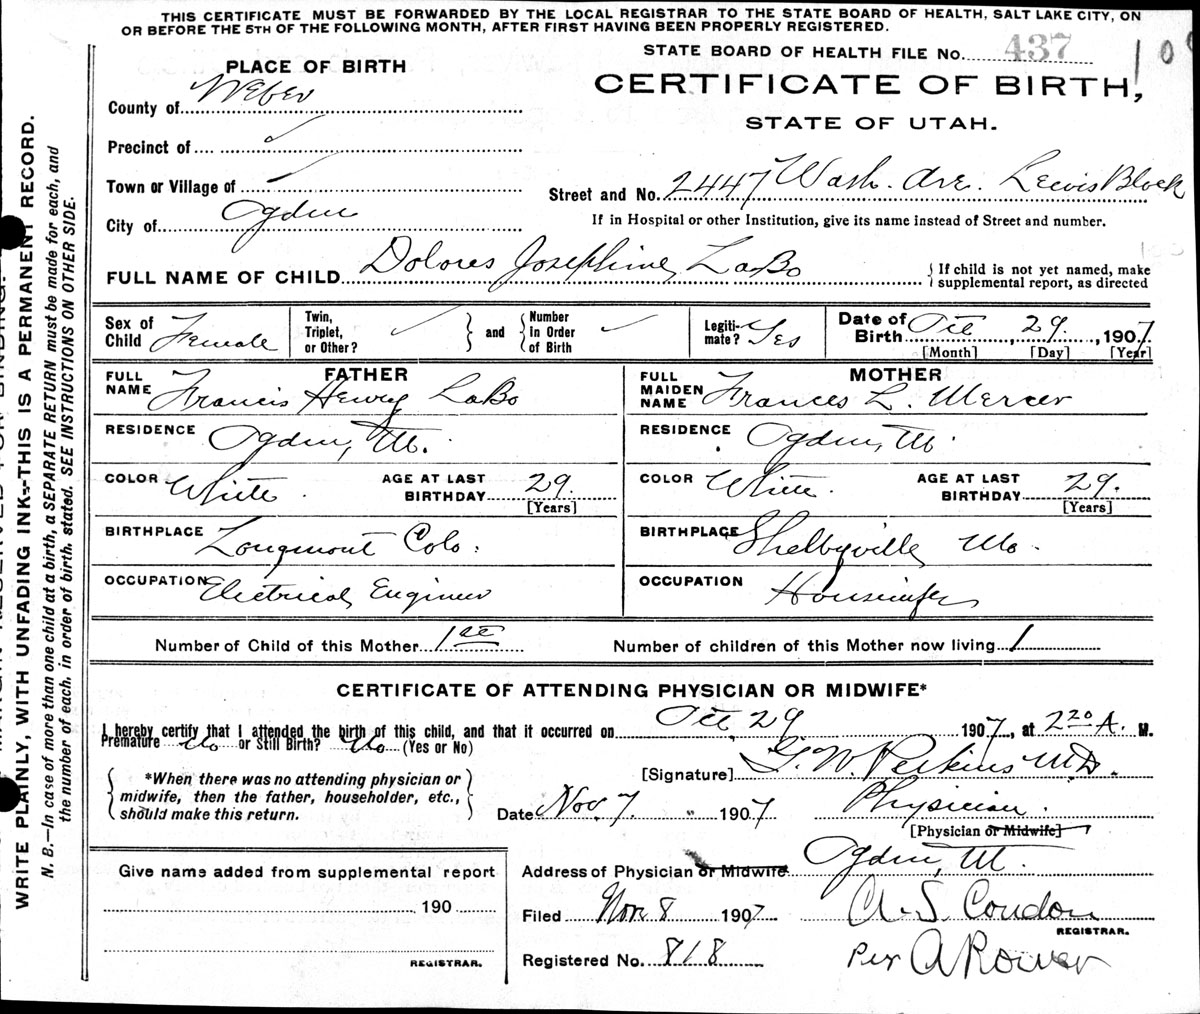 THIS CERTIFICATE MUST BE FORWARDED BY THE LOCAL REGISTRAR TO THE STATE BOARD OF HEALTH, SALT LAKE CITY, ON
OR BEFORE THE 5TH OF THE FOLLOWING MONTH, AFTER FIRST HAVING BEEN PROPERLY REGISTERED.
STATE BOARD OF HEALTH FILE No. 437
PLACE OF BIRTH
CERTIFICATE OF BIRTH,
STATE OF UTAH.
County of Weber
Precinct of ✓
Town or Village of ✓
City of Ogden
Street and No. 2447 Wash. Ave. Lewis Block
If in Hospital or other Institution, give its name instead of Street and number.
FULL NAME OF CHILD Dolores Josephine LaBo
{ If child is not yet named, make supplemental report, as directed
Sex of Child Female
Twin, Triplet, or Other? ✓ } and { Number In Order of Birth ✓
Legiti-mate? Yes
Date of Birth Oct, 29, 1907
[Month] [Day] [Year]
FATHER
FULL NAME Francis Henry LaBo
RESIDENCE Ogden, Ut.
COLOR White. AGE AT LAST BIRTHDAY 29. [Years]
BIRTHPLACE Longmont Colo.
OCCUPATION Electrical Engineer
MOTHER
FULL MAIDEN NAME Frances L. Mercer
RESIDENCE Ogden, Ut.
COLOR White. AGE AT LAST BIRTHDAY 29. [Years]
BIRTHPLACE Shelbyville Mo.
OCCUPATION Housewife
Number of Child of this Mother 1st
Number of children of this Mother now living 1
CERTIFICATE OF ATTENDING PHYSICIAN OR MIDWIFE*
I hereby certify that I attended the birth of this child, and that it occurred on Oct, 29 1907, at 2 20 A. M.
Premature No or Still Birth? No (Yes or No)
{ *When there was no attending physician or
midwife, then the father, householder, etc.,
should make this return. }
[Signature] G. W. Perkins M.D.
Date Nov. 7 " 1907 Physician.
[Physician or Midwife]
Address of Physician or Midwife Ogden, Ut.
Give name added from supplemental report
190
REGISTRAR.
Filed Nov. 8 1907 A. S. Condon
REGISTRAR.
Registered No. 818
Per
WRITE PLAINLY, WITH UNFADING INK--THIS IS A PERMANENT RECORD.
N. B.—In case of more than one child at a birth, a SEPARATE RETURN must be made for each, and
the number of each, in order of birth, stated. SEE INSTRUCTIONS ON OTHER SIDE.